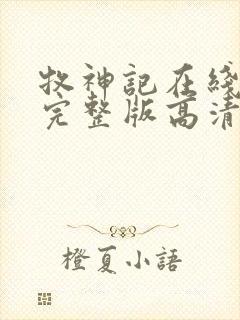 牧神記在綫
完整版高清
橙夏小語